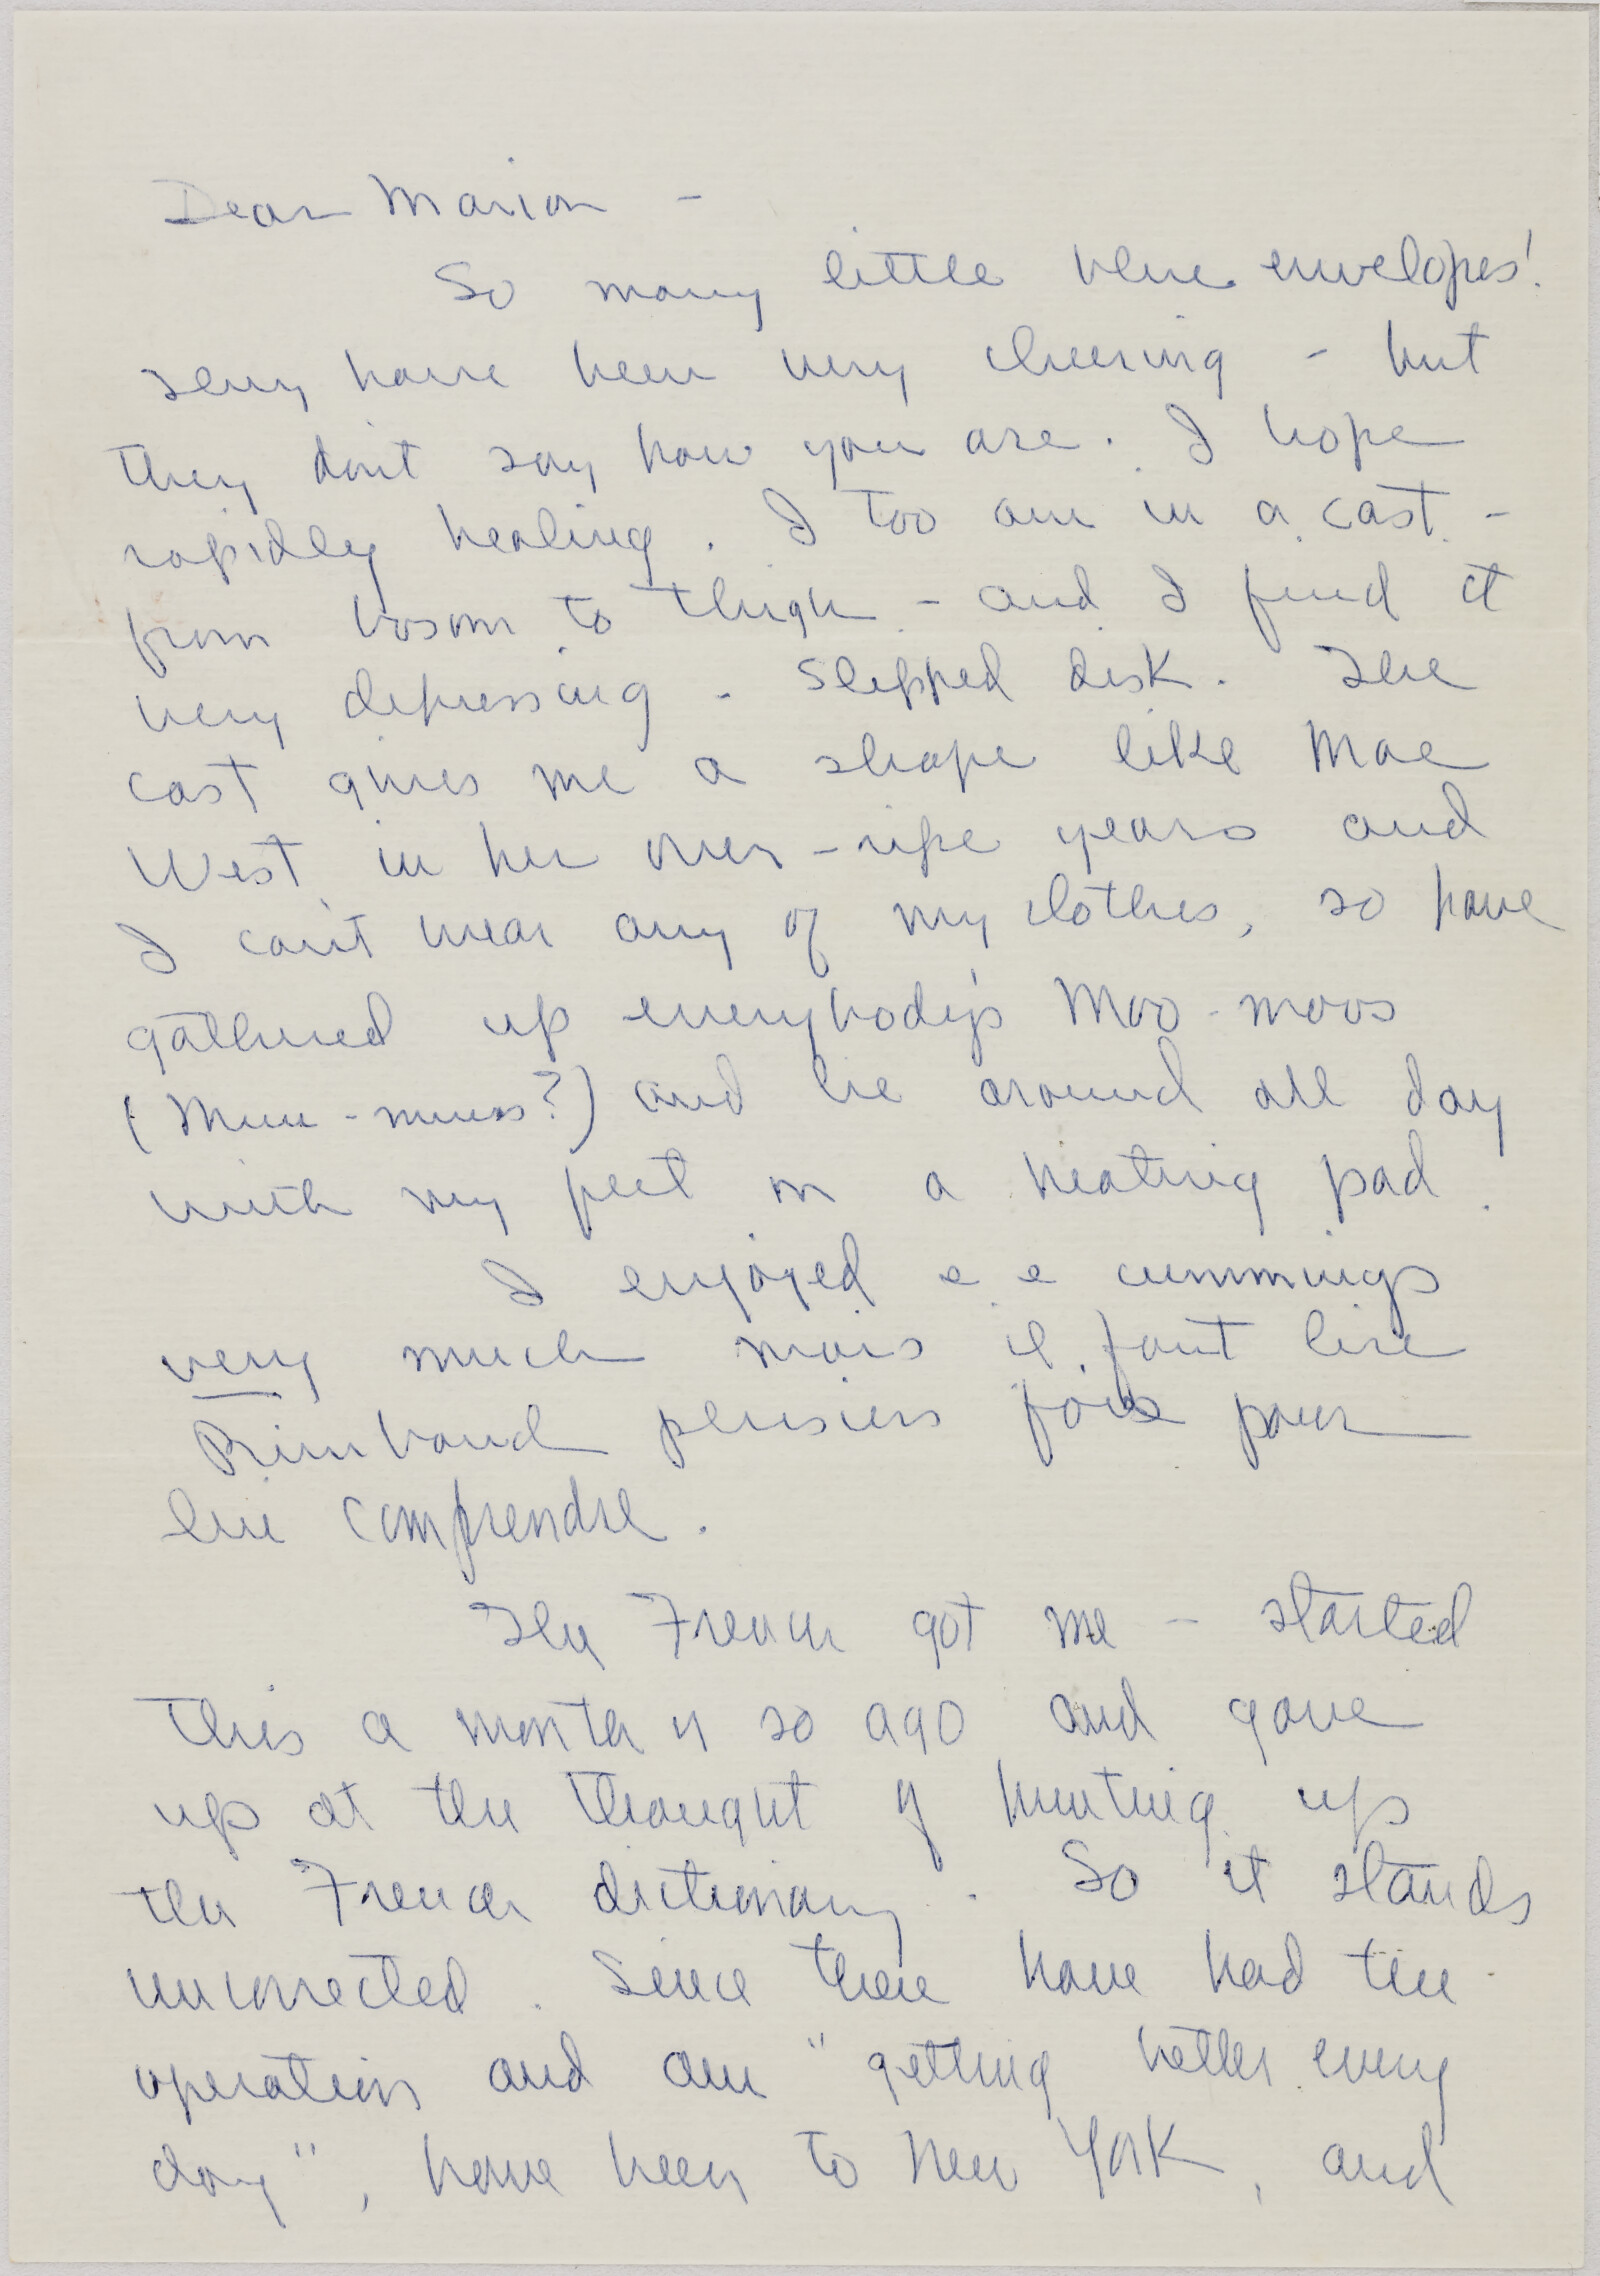 Dear Marion -
So many little blue envelopes!
They have been very cheering - but
they don't say how you are. I hope
rapidly healing. I too am in a cast -
from bosom to thigh - and I find it
very depressing - slipped disk. The
cast gives me a shape like Mae
West in her over-ripe years and
I can't wear any of my clothes, so have
gathered up everybody's Moo-moos
(Muu-muus?) and lie around all day
with my feet on a heating pad.
I enjoyed e e cummings
very much mais il faut lire
Rimbaud plusiers fois pour
lui comprendre.
The French got me - started
this a month or so ago and gave
up at the thought of hunting up
the French dictionary. So it stands
uncorrected. Since then have had the
operation and am "getting better every
day", have been to New York, and